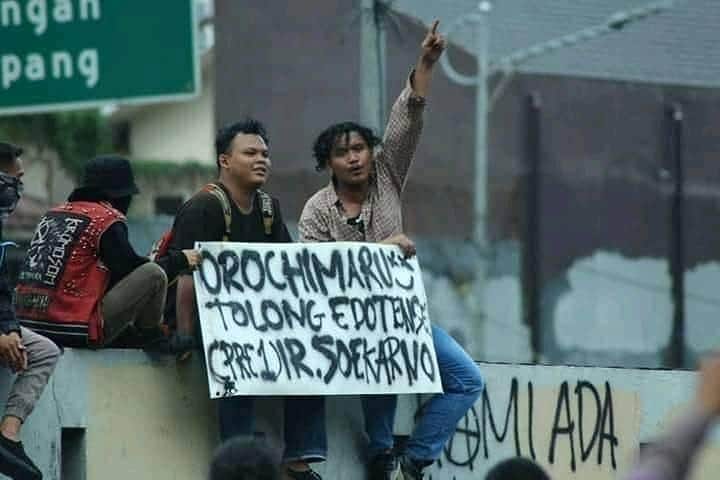 ngan
pang
OROCHIMARUS
TOLONG EDOTENSE
CPRE1IR.SOEKARNO
AMI ADA